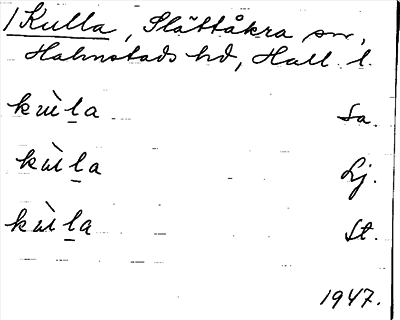 /Kulla, Slättåkra sn,
Halmstads hd, Hall. l.
kùḻa Sa.
kùḻa Lj.
kùḻa St.
1947.